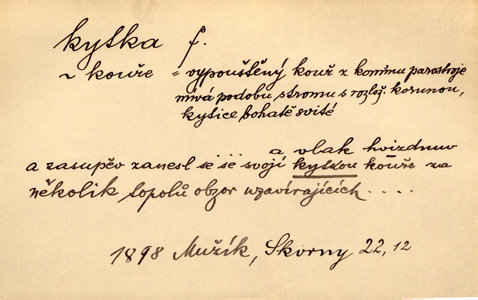 kytka f.
~ kouře = vypouštěný kouř z komínu parostroje
mívá podobu stromu s rozlož. korunou,
kytice bohatě svité
... a vlak hvízdnuv
a zasupěv zanesl se ... svojí kytkou kouře za
několik topolů obzor uzavírajících ....
1898 Mužík, Skorny 22, 12